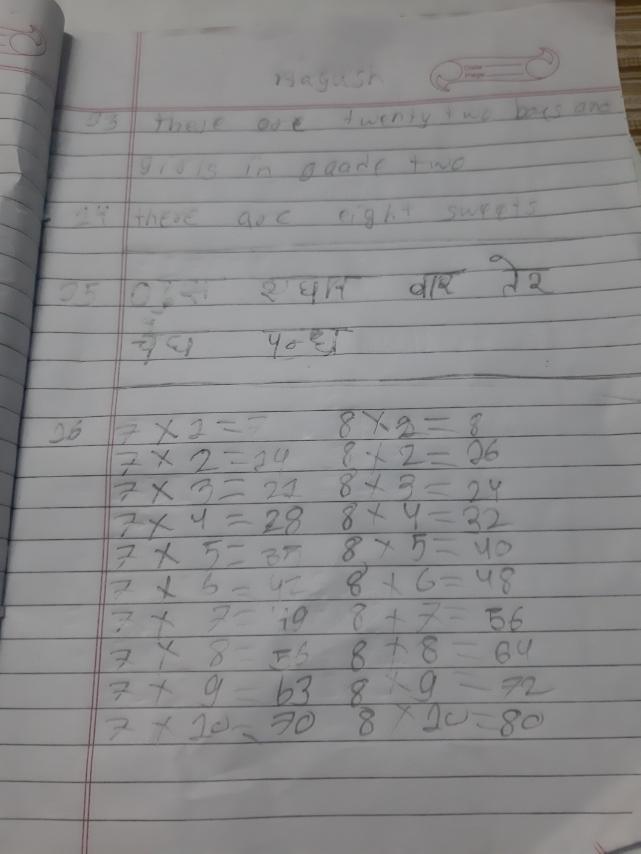 23 there are twenty two boes and
girls in gaade two
24 there are eight sweets
25 वार तेर
पन्द्रा
26 7 × 1 = 7 8 × 2 = 8
7 × 2 = 14 8 × 2 = 26
7 × 3 = 21 8 × 3 = 24
7 × 4 = 28 8 × 4 = 32
7 × 5 = 35 8 × 5 = 40
7 × 6 = 42 8 × 6 = 48
7 × 7 = 49 8 × 7 = 56
7 × 8 = 56 8 × 8 = 64
7 × 9 = 63 8 × 9 = 72
7 × 20 = 70 8 × 20 = 80